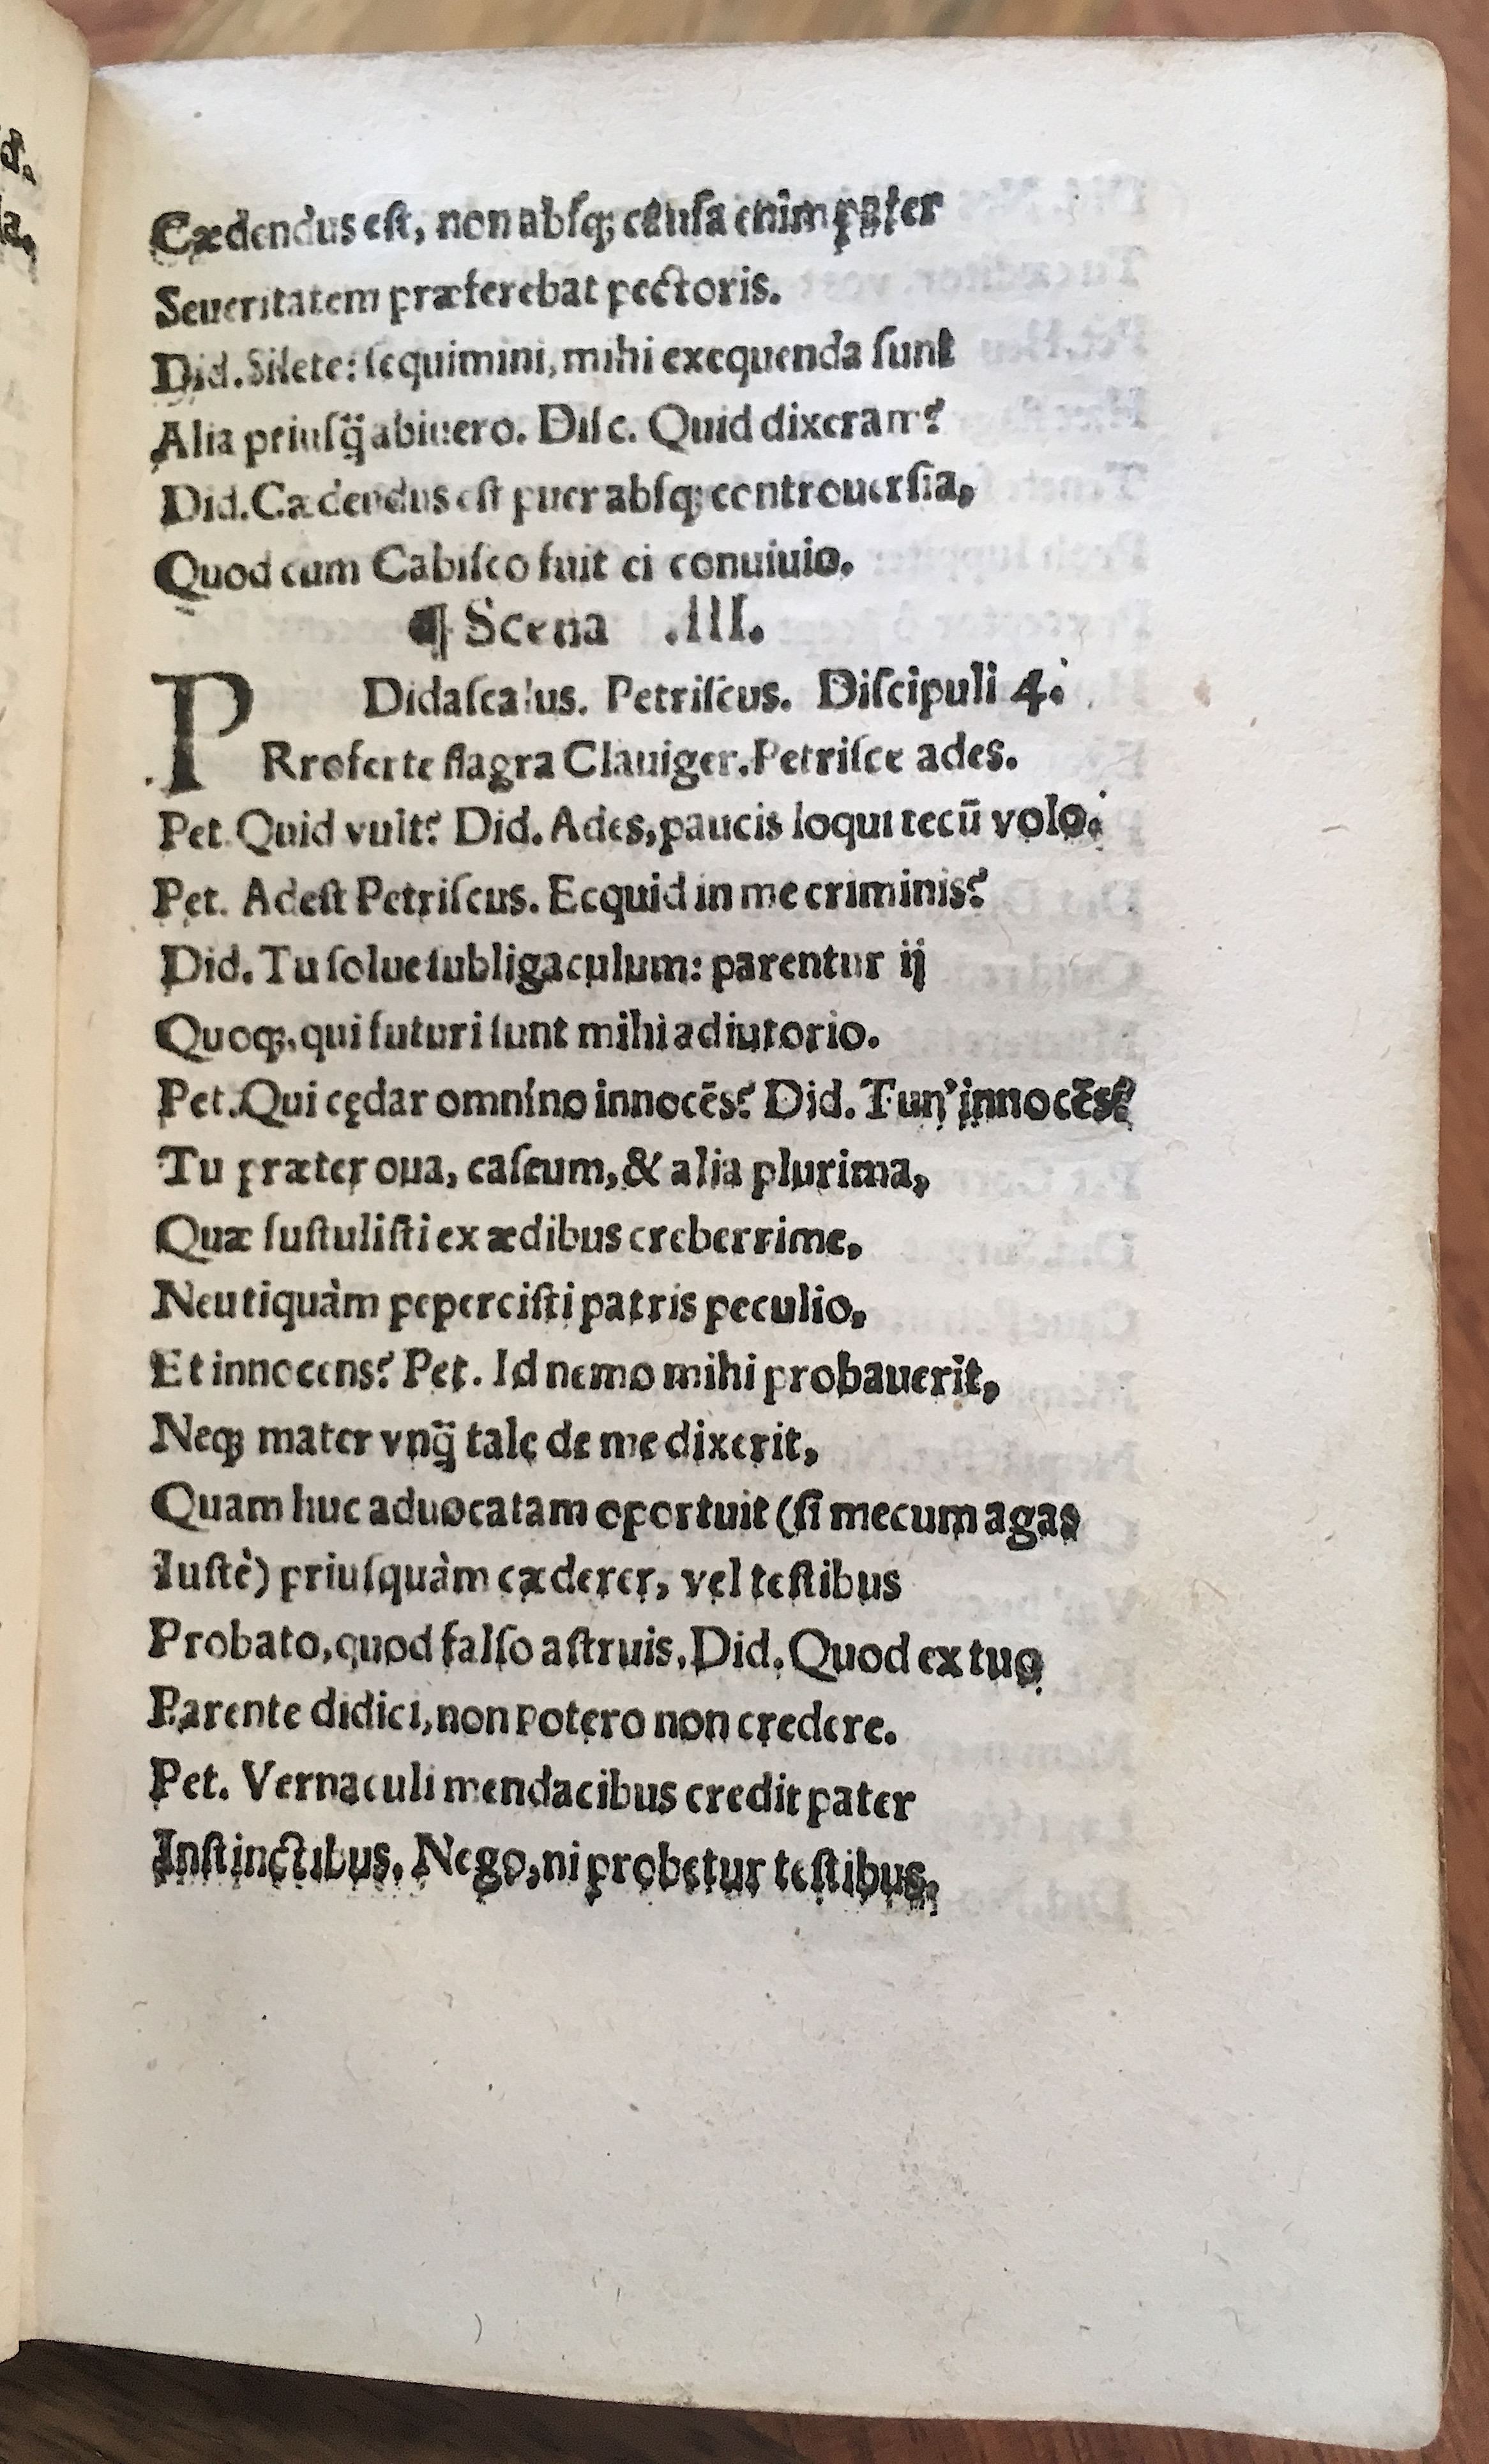 d.
la.
Cædendus eſt, non abſq; cauſa enim pater
Seueritatem præferebat pectoris.
Did. Silete: ſequimini, mihi exequenda ſunt
Alia priuſq̃ abiuero. Diſc. Quid dixeram?
Did. Cædendus eſt puer abſq; controuerſia,
Quod cum Cabiſco fuit ei conuiuio.
¶ Scena .III.
Didaſcalus. Petriſcus. Diſcipuli 4.
PRroferte flagra Clauiger. Petriſce ades.
Pet. Quid vult? Did. Ades, paucis loqui tecũ volo.
Pet. Adeſt Petriſcus. Ecquid in me criminis?
Did. Tu ſolue ſubligaculum: parentur ij
Quoq;, qui futuri ſunt mihi adiutorio.
Pet. Qui cędar omnino innocẽs? Did. Tun' innocẽs?
Tu præter oua, caſeum, & alia plurima,
Quæ ſuſtuliſti ex ædibus creberrime,
Neutiquàm peperciſti patris peculio,
Et innocens? Pet. Id nemo mihi probauerit,
Neq; mater vnq̃ tale de me dixerit,
Quam huc aduocatam oportuit (ſi mecum agas
Iuſtè) priuſquàm cæderer, vel teſtibus
Probato, quod falſo aſtruis. Did. Quod ex tuo
Parente didici, non potero non credere.
Pet. Vernaculi mendacibus credit pater
Inſtinctibus. Nego, ni probetur teſtibus.